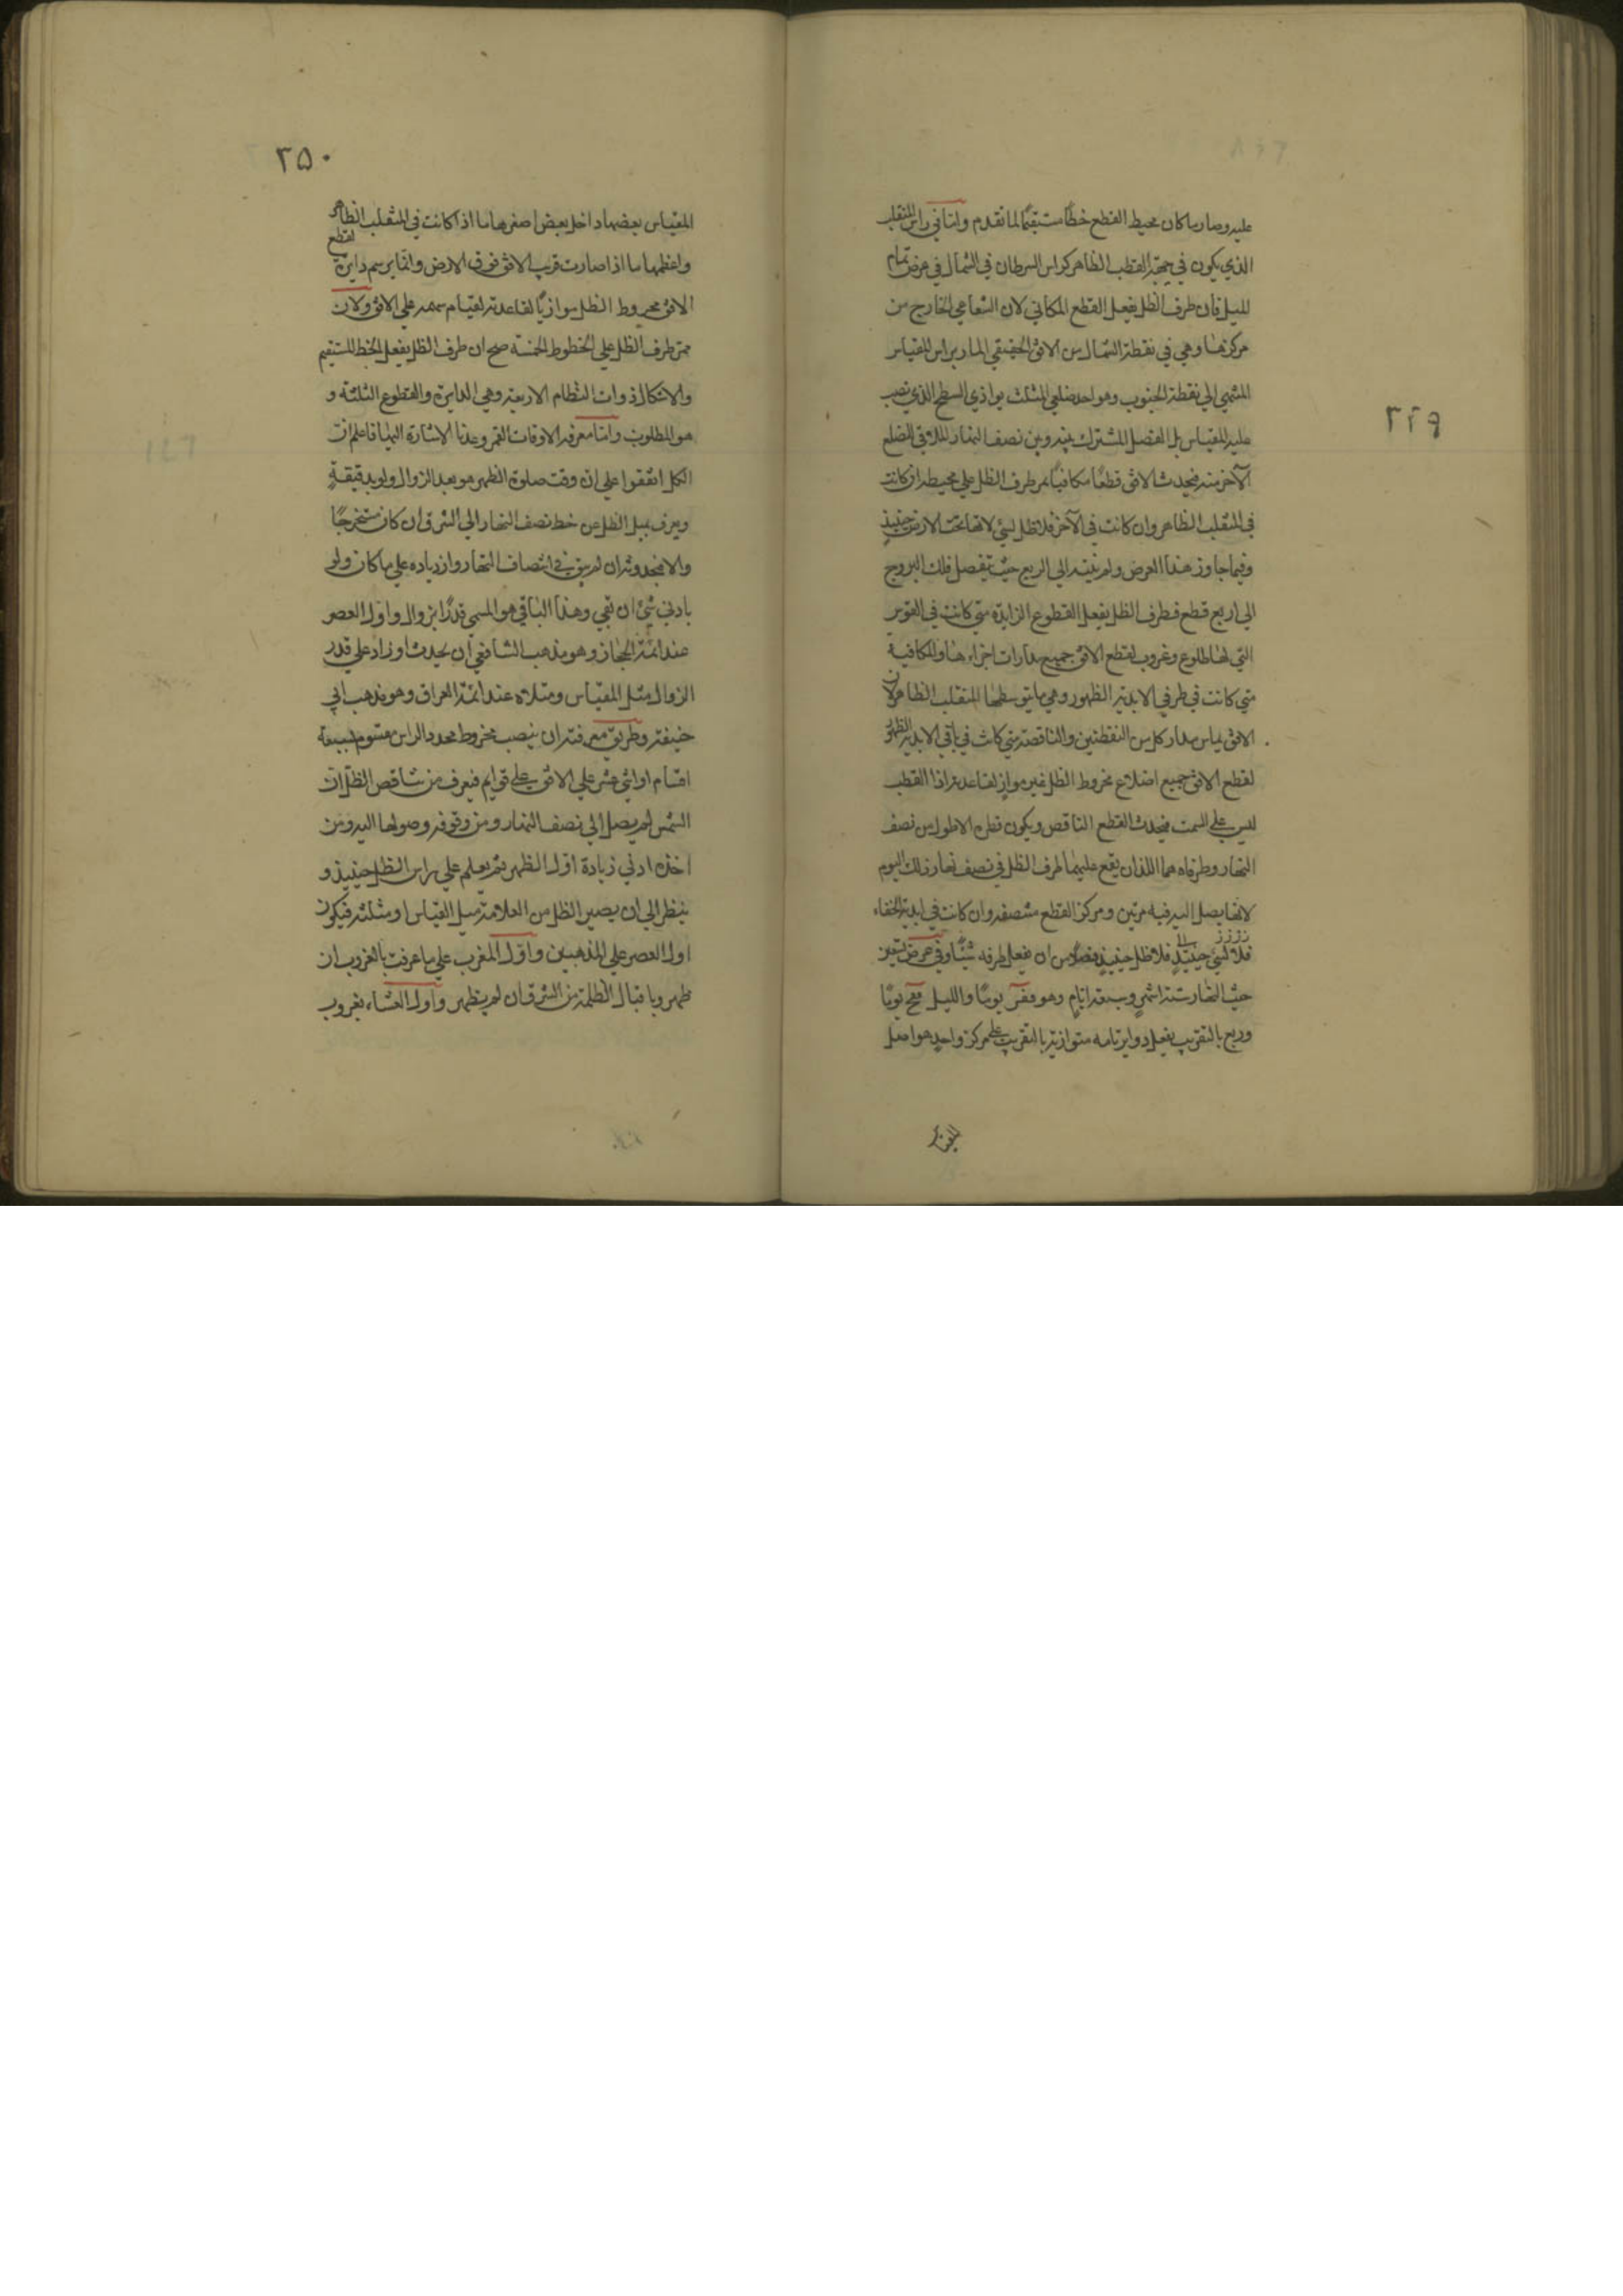 ٢٤٩
عليه وصار ما كان محيط القطع خطًا مستقيمًا لما تقدم واما في راس المنقلب
الذي يكون في جهة القطب الظاهر كراس السرطان في الشمال في عرض تمام
الميل فان طرف الظل يفعل القطع المكافي لان الشعاعي الخارج من
مركزها وهي في نقطة الشمال من الافق الحقيقي المار براس المقياس
المنتهي الى نقطة الجنوب وهو احد ضلعي المثلث يوازي السطح الذي نصب
عليه المقياس بل الفصل المشترك بينه وبين نصف النهار الملاقي الضلع
الآخر منه فيحدث الافق قطعًا مكافيًا يمر طرف الظل على محيطه ان كانت
في المنقلب الظاهر وان كانت في الآخر فلا ظل لشي لانها تحت الارض حينيذٍ
وفيما جاوز هذا العرض ولم ينته الى الربع حيث ينفصل فلك البروج
الى اربع قطع فطرف الظل يفعل القطوع الزايدة متى كانت في القوس
التي لها طلوع وغروب لقطع الافق جميع مدارات اجزاءها والمكافية
متى كانت في طرفي الابدية الظهور وهي ما يتوسطها المنقلب الظاهر لان
الافق يماس مدار كل من النقطتين والناقصة متى كانت في باقي الابدية الظهور
لقطع الافق جميع اضلاع مخروط الظل غير موازٍ لقاعدته اذا القطب
ليس على السمت فيحدث القطع الناقص ويكون قطره الاطول من نصف
النهار وطرفاه هما اللذان يقع عليهما طرف الظل في نصف نهار ذلك اليوم
لانها يصل اليه فيه مرتين ومركز القطع منتصفه وان كانت في ابدية الخفاء
فلا ظل حينيذٍ فضلًا من ان يفعل طرفه شيئًا وفي عرض تسعين
حيث النهار ستة اشهرٍ وسبعة ايامٍ وهو قفز يومًا والليل قعح يومًا
وربع بالتقريب يفعل دواير تامه متوازية بالتقريب على مركز واحدٍ هو اصل
المقياس
٢٥٠
المقياس بعضها داخل بعض اصغرها ما اذا كانت في المنقلب الظاهر
واعظمها ما اذا صارت قرب الافق فوق الارض وانما يرسم دايرة لقطع
الافق مخروط الظل موازيًا لقاعدته لقيام سهمه على الافق ولان
ممر طرف الظل على الخطوط الخمسة صح ان طرف الظل يفعل الخط المستقيم
والاشكال ذوات النظام الاربعة وهي الدايرة والقطوع الثلثة و
هو المطلوب واما معرفة الاوقات التي وعدنا الاشارة اليها فاعلم ان
الكل اتفقوا على ان وقت صلوة الظهر هو بعد الزوال ولو بدقيقةٍ
ويعرف بميل الظل عن خط نصف النهار الى الشرق ان كان مستخرجًا
والا فبحدوثه ان لم يبق في انتصاف النهار وازدياده على ما كان ولو
بادنى شيٍ ان بقي وهذا الباقي هو المسمى قدر الزوال واول العصر
عند ائمة الحجاز وهو مذهب الشافعي ان يحدث او زاد على قدر
الزوال مثل المقياس ومثلاه عند ائمة العراق وهو مذهب ابي
حنيفة وطريق معرفته ان ينصب مخروط محدد الراس مقسوم بسبعة
اقسام او اثني عشر على الافق على قوايم فيعرف من تناقص الظل ان
الشمس لم يصل الى نصف النهار ومن وقوفه وصولها اليه ومن
اخذه ادنى زيادة اول الظهر ثم يعلم على راس الظل حينيذ و
ينظر الى ان يصير الظل من العلامة مثل المقياس او مثليه فيكون
اول العصر على المذهبين واول المغرب على ما عرفت بالغروب ان
ظهر وباقبال الظلمة من الشرق ان لم يظهر واول العشاء بغروب